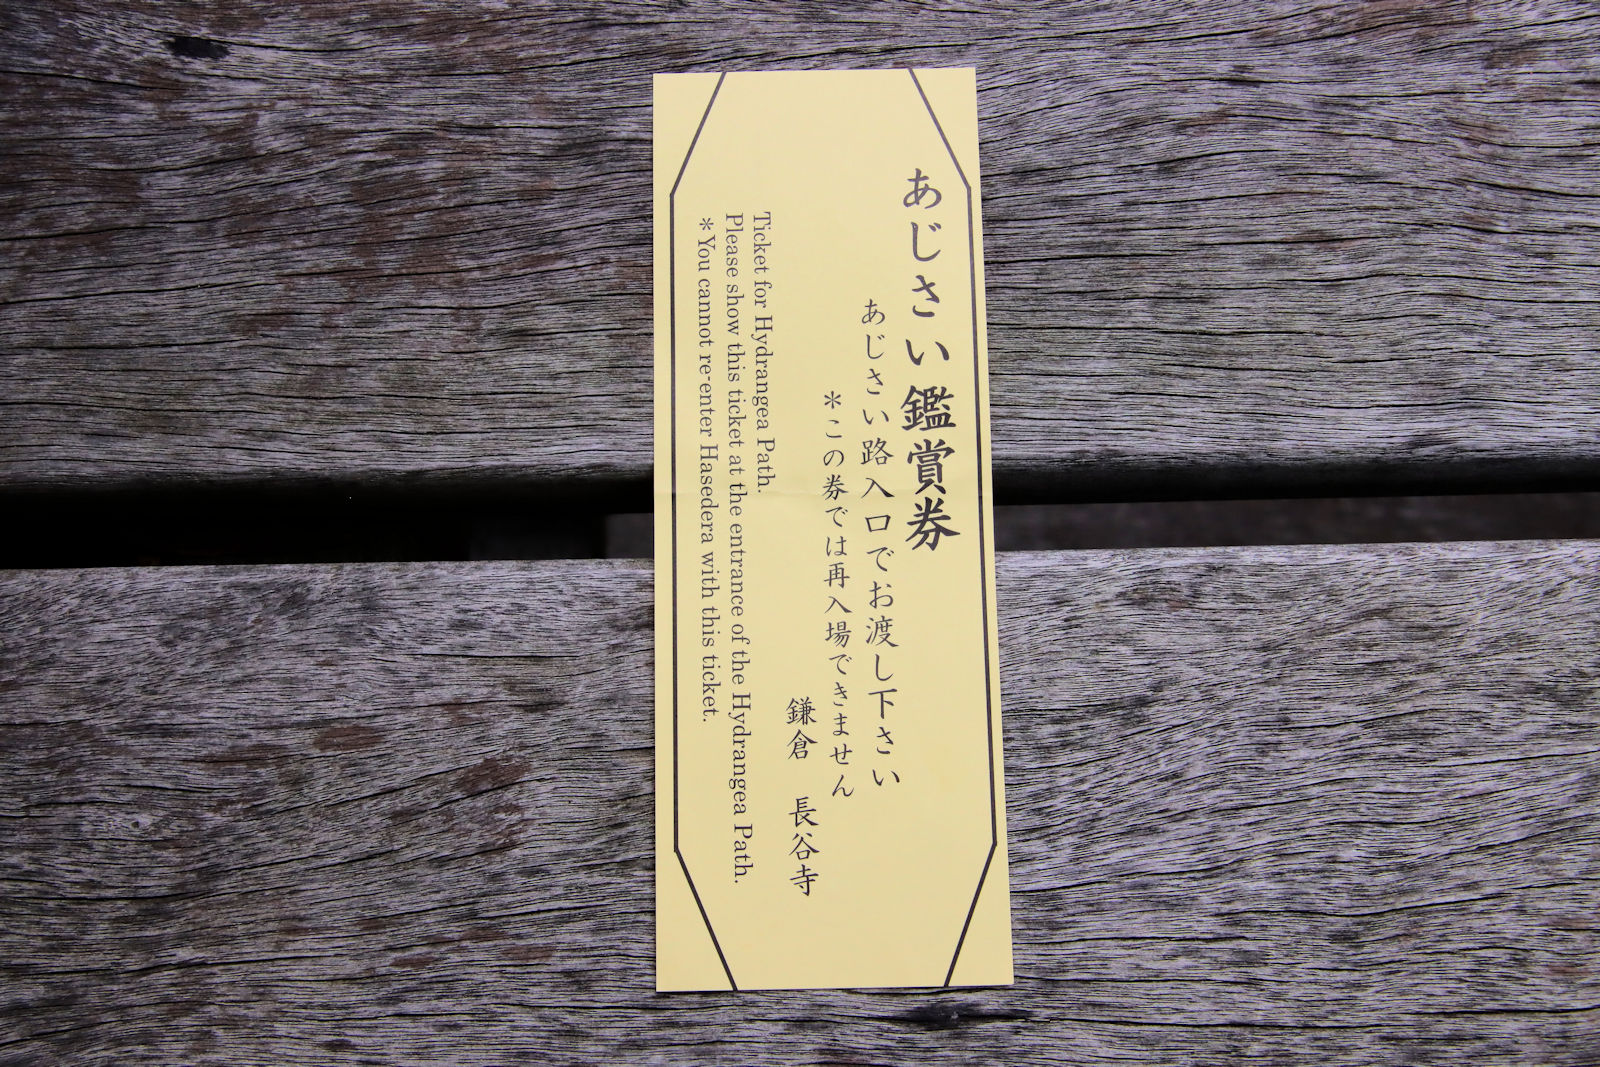 あじさい鑑賞券
あじさい路入口でお渡し下さい
＊この券では再入場できません
鎌倉　長谷寺
Ticket for Hydrangea Path.
Please show this ticket at the entrance of the Hydrangea Path.
＊You cannot re-enter Hasedera with this ticket.